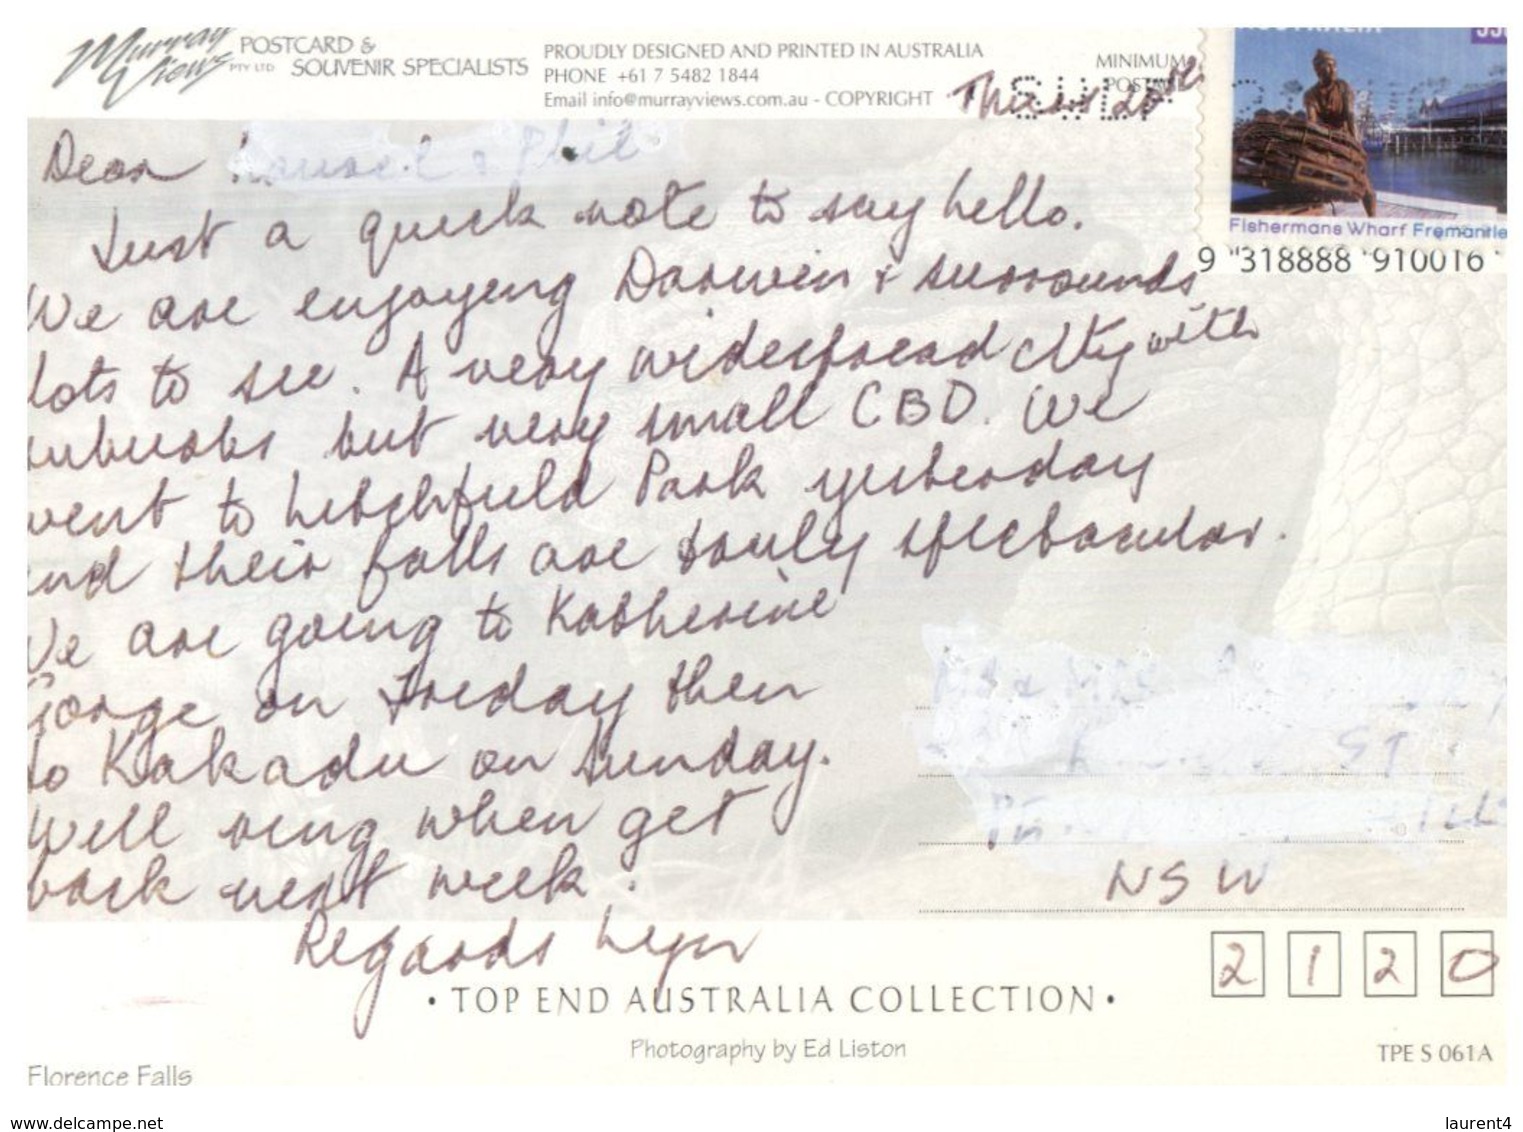 Murray Views PTY LTD
POSTCARD &
SOUVENIR SPECIALISTS
PROUDLY DESIGNED AND PRINTED IN AUSTRALIA
PHONE +61 7 5482 1844
Email info@murrayviews.com.au - COPYRIGHT
MINIMUM
POSTAGE
Thurs 20th
AUSTRALIA
Fishermans Wharf Fremantle
9 318888 910016
Dear & Phil
Just a quick note to say hello.
We are enjoying Darwin & surrounds
lots to see. A very widespread city with
suburbs but very small CBD. We
went to Litchfield Park yesterday
and their falls are truly spectacular.
We are going to Katherine
Gorge on Friday then
to Kakadu on Sunday.
Will ring when get
back next week.
Regards Lyn
ST
NSW
2 1 2 0
• TOP END AUSTRALIA COLLECTION •
Photography by Ed Liston
TPE S 061A
Florence Falls
www.delcampe.net
laurent4